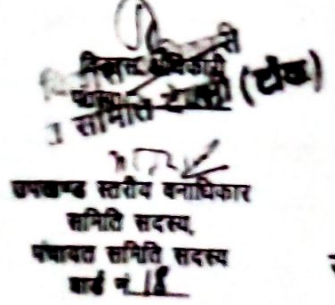 विकास अधिकारी
समिति (टोंक)
उपखण्ड स्तरीय वनाधिकार
समिति सदस्य,
पंचायत समिति सदस्य
वार्ड नं. 18